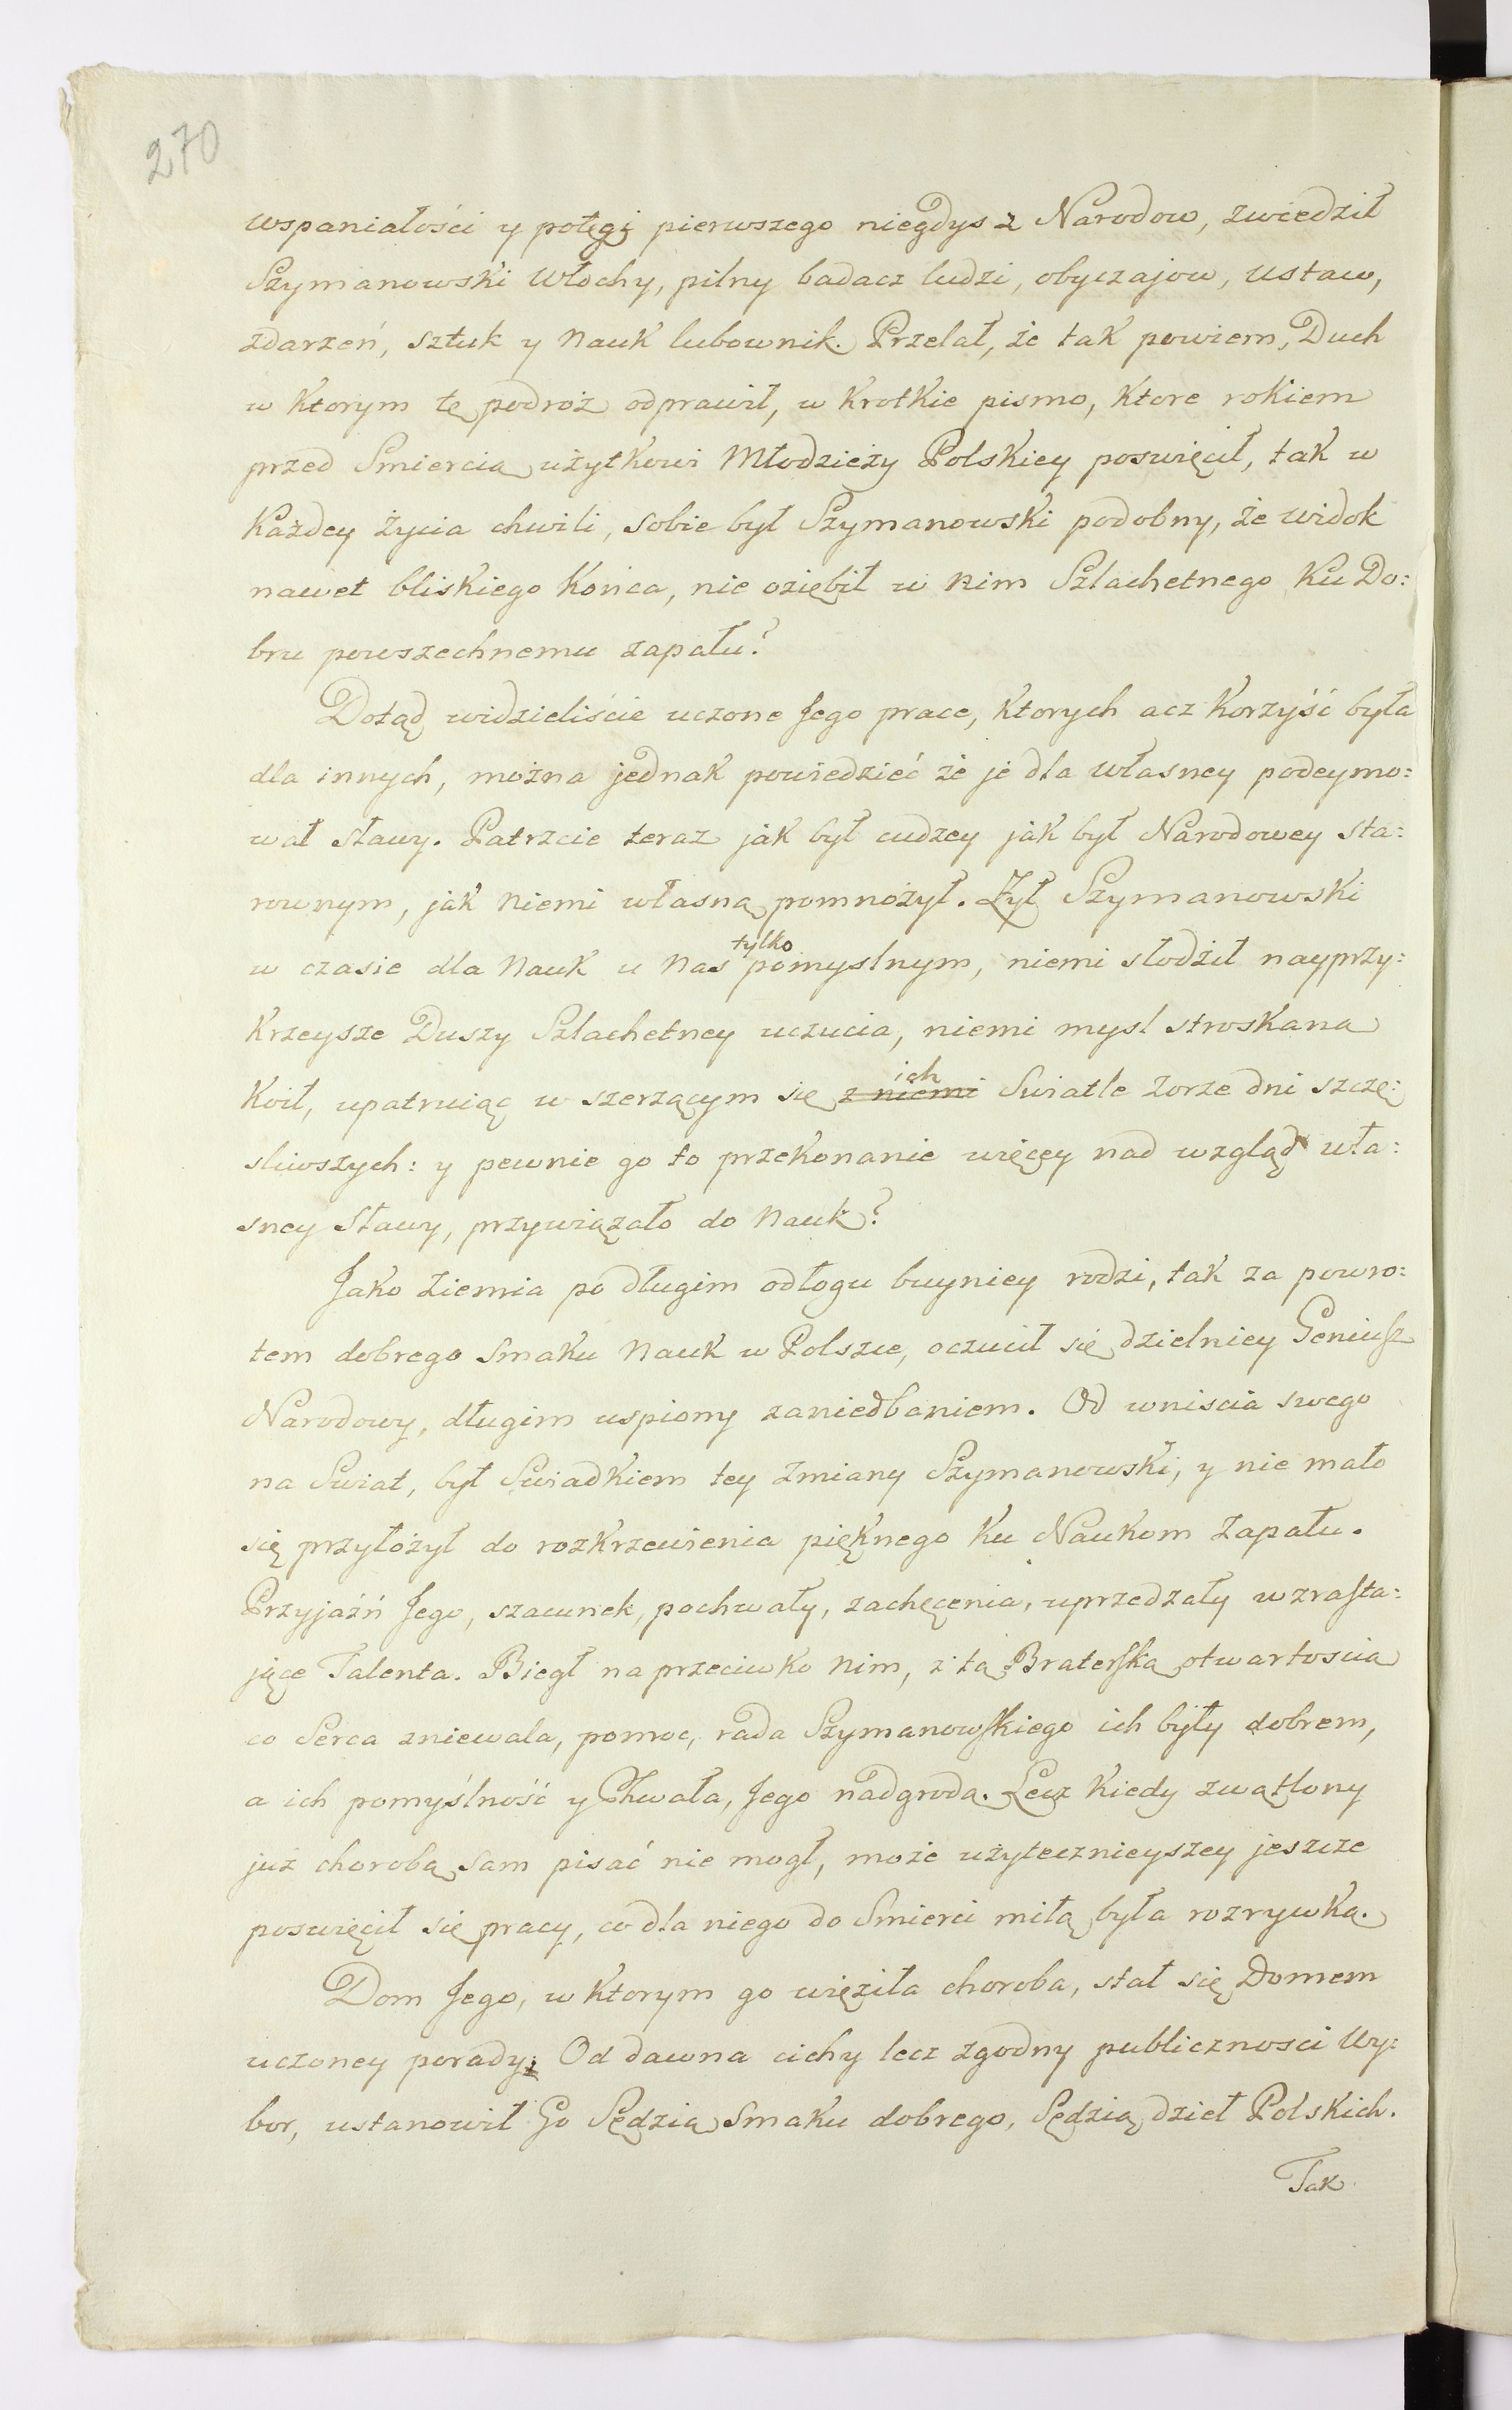 270
wspaniałości y potęgi pierwszego niegdys z Narodow, zwiedził
Szymanowski Włochy, pilny badacz ludzi, obyczajow, ustaw,
zdarzeń, sztuk y Nauk lubownik. Przelał, że tak powiem, Duch
w ktorym tę podroż odprawił, w krotkie pismo, ktore rokiem
przed Smiercią użytkowi Młodzieży Polskiey poswięcił, tak w
każdey życia chwili, sobie był Szymanowski podobny, że widok
nawet bliskiego końca, nie oziębił w nim Szlachetnego ku Do:
bru powszechnemu zapału?
Dotąd widzieliście uczone Jego prace, ktorych acz korzyść była
dla innych, można jednak powiedzieć że je dla własney podeymo:
wał sławy. Patrzcie teraz jak był cudzey jak był Narodowey sta:
rownym, jak niemi własną pomnożył. Żył Szymanowski
w czasie dla Nauk u Nas tylko pomyslnym, niemi słodził nayprzy:
krzeysze Duszy Szlachetney uczucia, niemi mysl stroskana
koił, upatruiąc w szerzącym się z niemi ich Swiatle Zorze dni szczę:
sliwszych: y pewnie go to przekonanie więcey nad wzgląd wła:
sney Sławy, przywiązało do Nauk?
Jako Ziemia po długim odłogu buyniey rodzi, tak za powro:
tem dobrego Smaku Nauk w Polszcze, oczucił się dzielniey Geniusz
Narodowy, długim uspiony zaniedbaniem. Od wniscia swego
na Swiat, był Swiadkiem tey zmiany Szymanowski, y nie mało
się przyłożył do rozkrzewienia pięknego ku Naukom Zapału.
Przyjaźń Jego, szacunek, pochwały, zachęcenia, uprzedzały wzrasta:
jące Talenta. Biegł naprzeciwko nim, z tą Braterską otwartoscią
co Serca zniewala, pomoc, rada Szymanowskiego ich były dobrem,
a ich pomyślność y Chwała, Jego nadgrodą. Lecz kiedy zwątlony
już chorobą sam pisać nie mogł, może użytecznieyszey jeszcze
poswięcił się pracy, co dla niego do Smierci miłą była rozrywką.
Dom Jego, w ktorym go więziła choroba, stał się Domem
uczoney porady; Od dawna cichy lecz zgodny publicznosci Wy:
bor, ustanowił Go Sędzią Smaku dobrego, Sędzią dzieł Polskich.
Tak